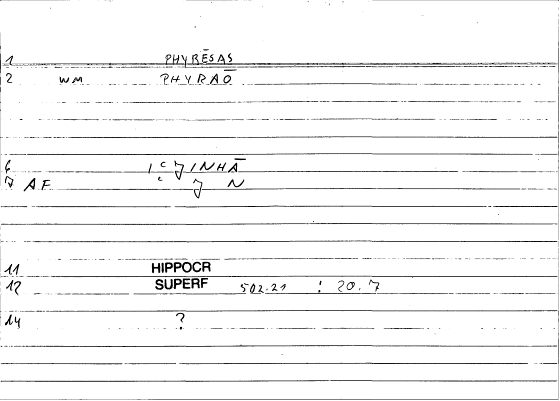 1 PHYRĒSAS
2 WM PHYRAŌ
6
7 AF
11 HIPPOCR
12 SUPERF 502.21 : 20.7
14 ?